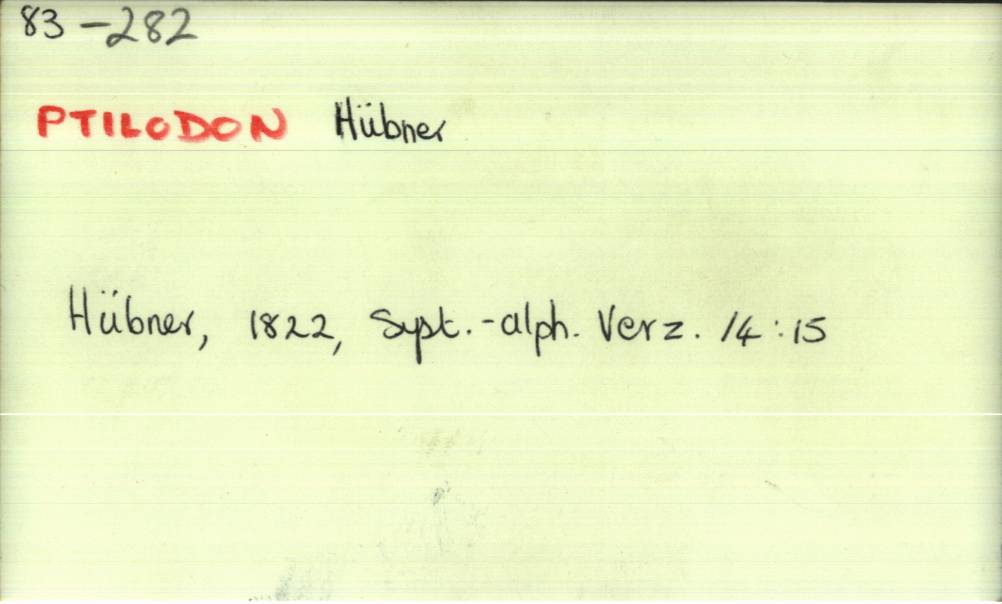 83-282
PTILODON Hübner
Hübner, 1822, Syst.-alph. Verz. 14:15